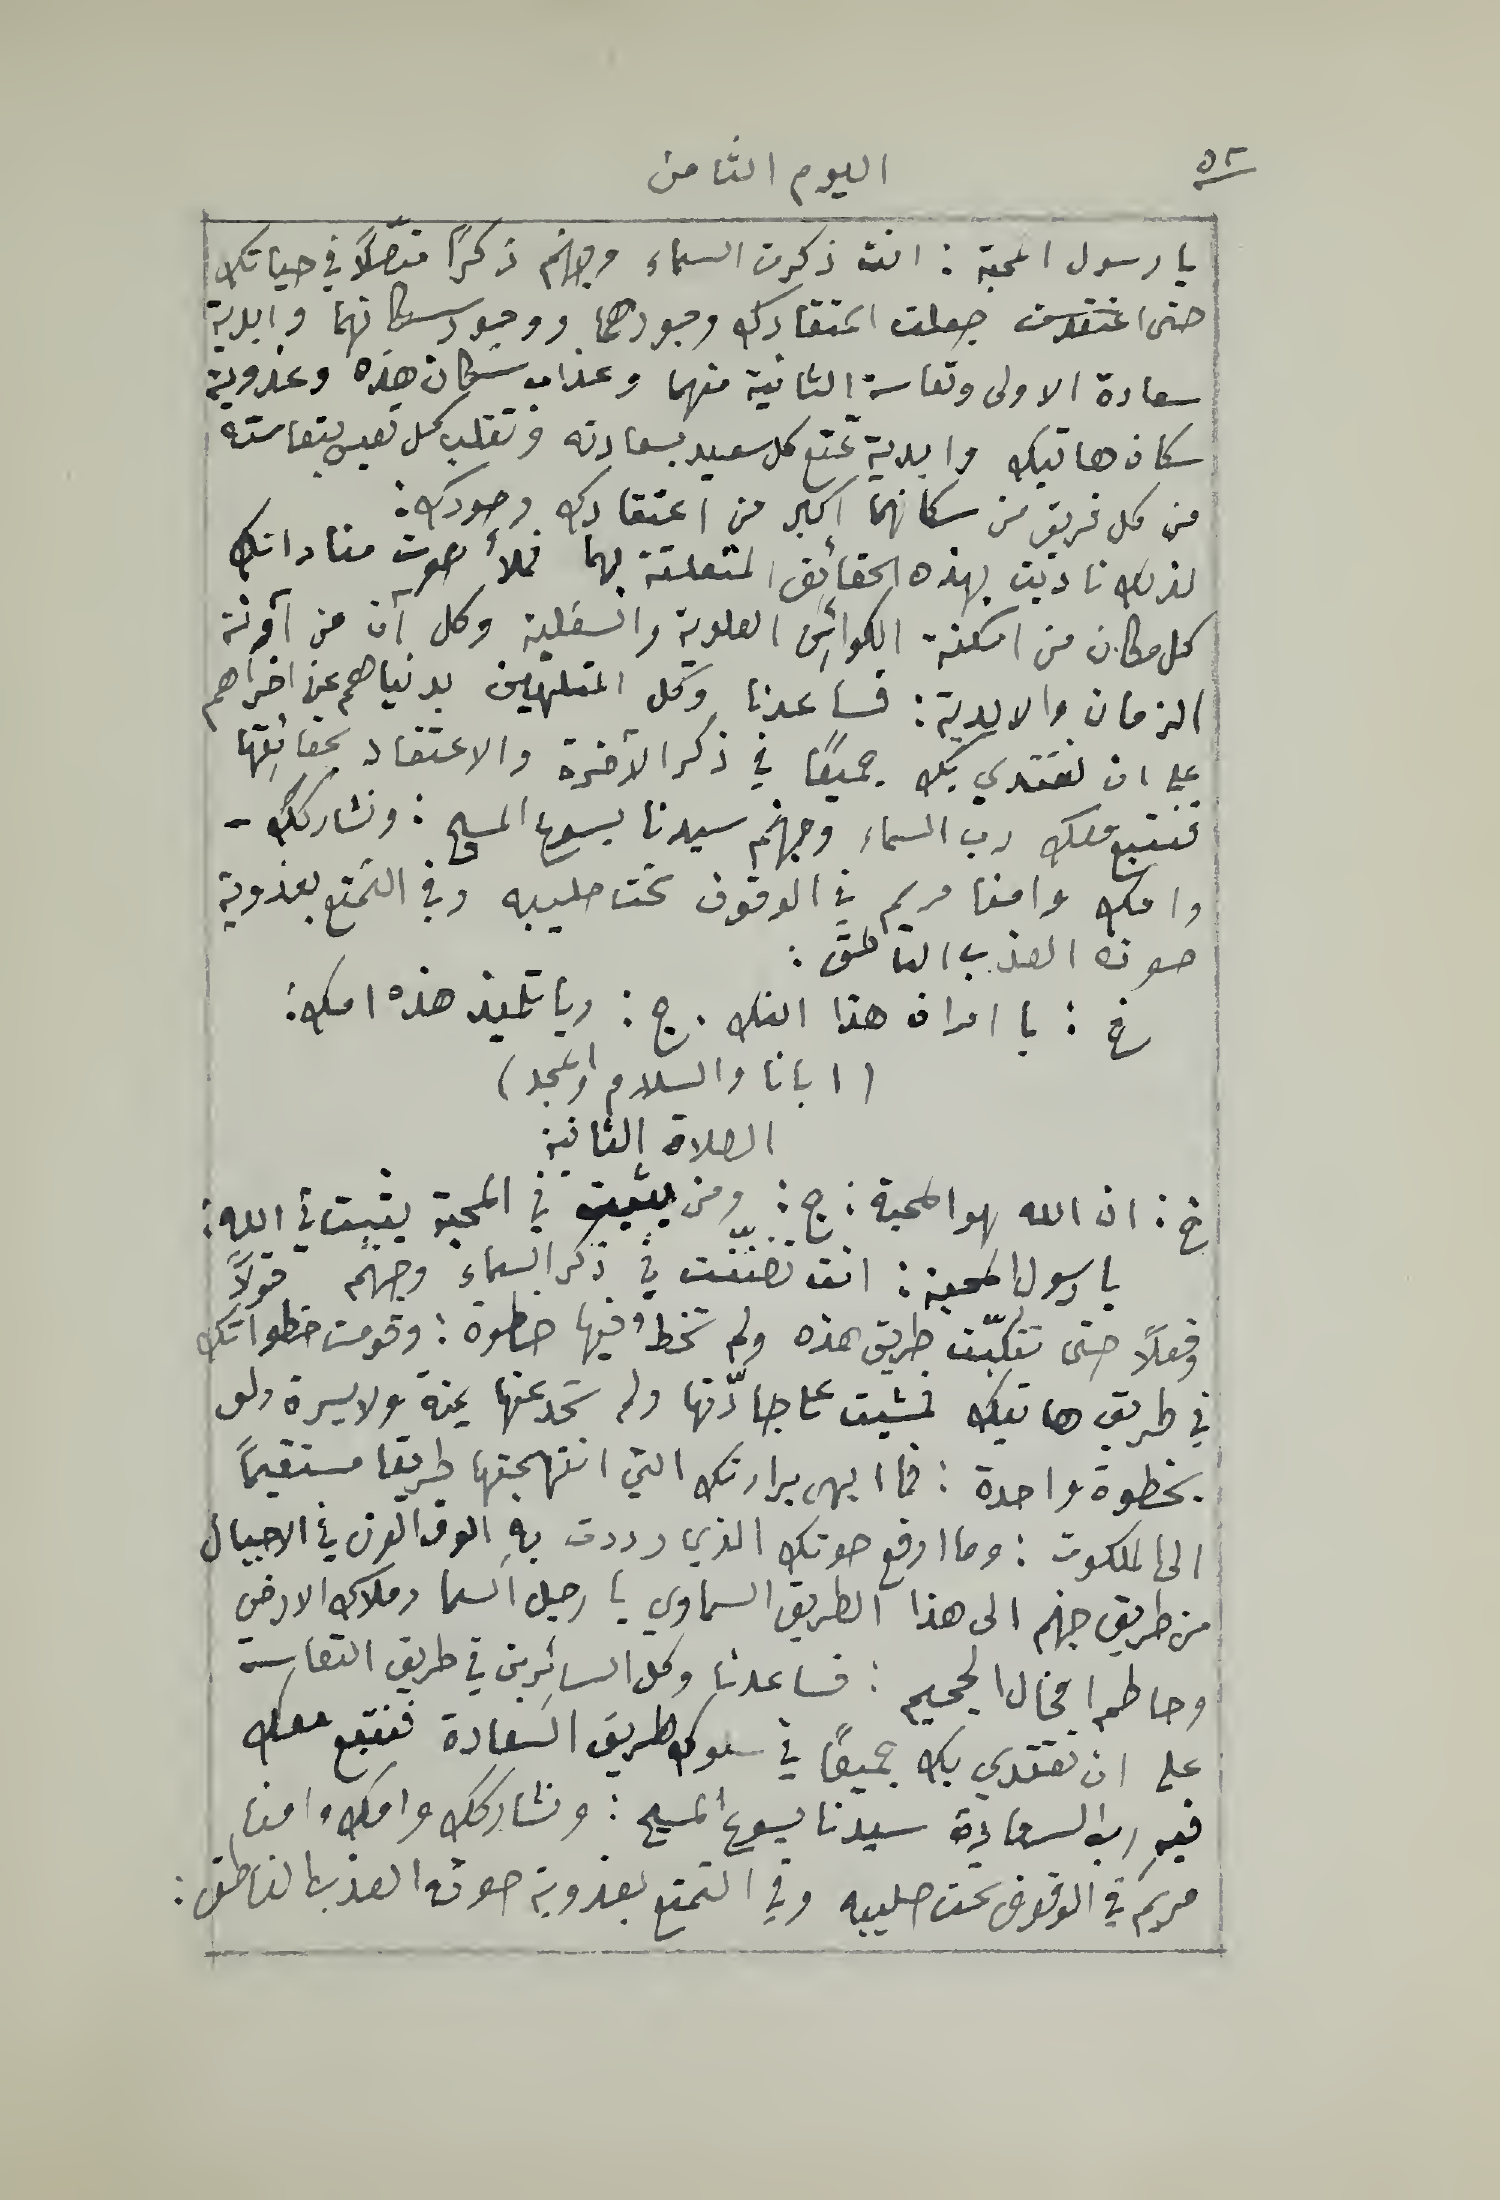 ٥٢
اليوم الثامن
يا رسول المحبة : انت ذكرت السماء وجهنم ذكرًا متصّلًا في حياتك
حتى اعتقدت جعلت اعتقادك وجودهما ووجود سكانهما وابدية
سعادة الاولى وتعاسة الثانية منهما وعذاب سكان هذه وعذوبة
سكان هاتيك وابدية تمتّع كل سعيد بسعادته وتقلب كل تعيس بتعاسته
من كل فريق من سكانهما اكبر من اعتقادك وجودك :
لذلك ناديت بهذه الحقائق المتعلقة بهما فملأ صوت مناداتك
كل مكان من امكنة الكوائن العلوية والسفلية وكل آن من آونة
الزمان والابدية : فساعدنا وكل المتلهين بدنياهم عن اخراهم
على ان نقتدي بك جميعًا في ذكر الآخرة والاعتقاد بحقائقها
فنتبع معك رب السماء وجهنم سيدنا يسوع المسيح : ونشاركك –
وامك وامنا مريم في الوقوف تحت صليبه وفي التمتع بعذوبة
صوته العذب الناطق :
خ : يا امراة هذا ابنك . ج : ويا تلميذ هذه امك :
( ابانا والسلام والمجد )
الصلاة الثانية
خ : ان الله هو المحبة : ج : ومن يثبت في المحبة يثبت في الله :
يا رسول المحبة : انت تفنّنت في ذكر السماء وجهنم قولًا
وفعلًا حتى تنكّبت طريق هذه ولم تخطُ فيها خطوة : وقومت خطواتك
في طريق هاتيك فمشيت على جادّتها ولم تحد عنها يمنة ولا يسرة ولو
بخطوة واحدة : فما ابهى برارتك التي انتهجتها طريقا مستقيمًا
الى الملكوت : وما ارفع صوتك الذي رددت به الوف الوف في الاجيال
من طريق جهنم الى هذا الطريق السماوي يا رجل السما وملاك الارض
وحاطم افخال الجحيم : فساعدنا وكل السائرين في طريق التعاسة
على ان نقتدي بك جميعًا في سلوك طريق السعادة فنتبع معك
فيه رب السعادة سيدنا يسوع المسيح : ونشاركك وامك وامنا
مريم في الوقوف تحت صليبه وفي التمتع بعذوبة صوته العذب الناطق :